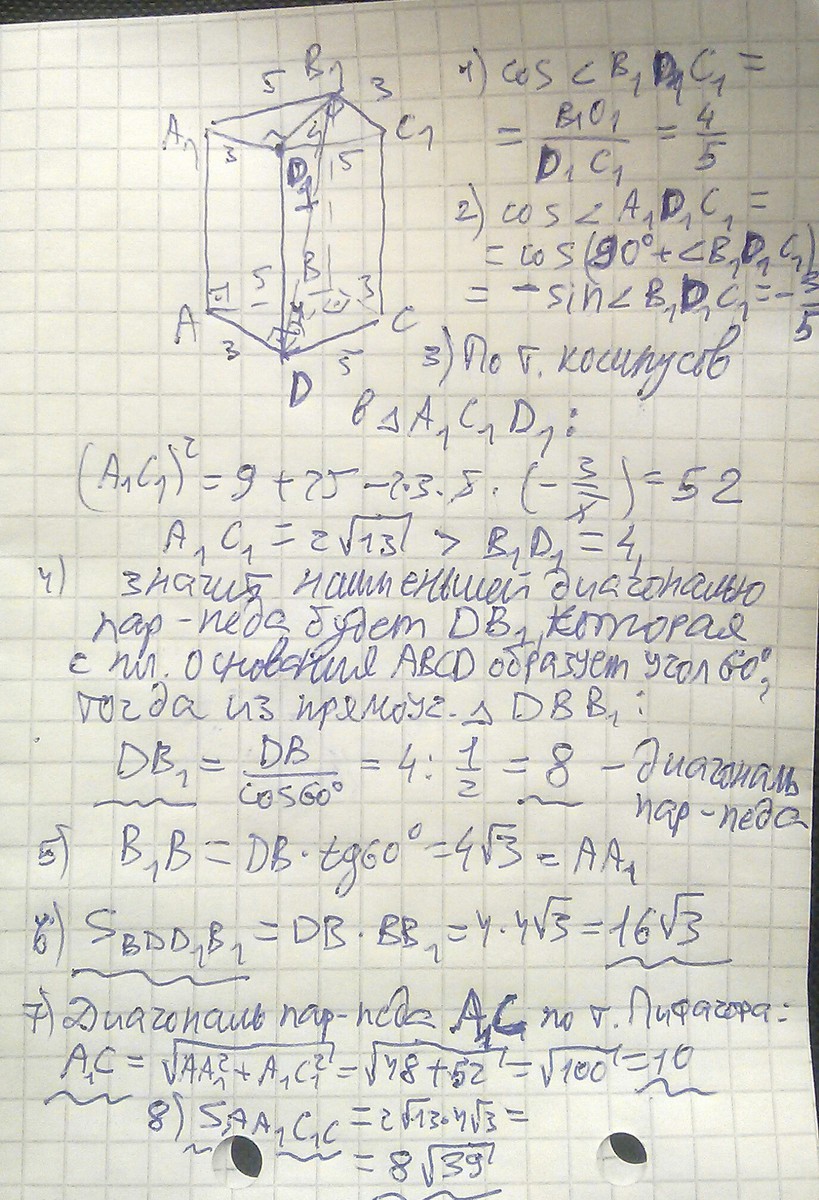 B₁
5
3
A₁
C₁
4
3
D₁
5
5
B
3
A
C
3
5
D
1) cos < B₁D₁C₁ =
= B₁O₁ / D₁C₁ = 4/5
2) cos < A₁D₁C₁ =
= cos(90° + <B₁D₁C₁)
= - sin < B₁D₁C₁ = - 3/5
3) По т. косинусов
в △ A₁C₁D₁:
(A₁C₁)² = 9 + 25 - 2·3·5·(- 3/5) = 52
A₁C₁ = 2√13 > B₁D₁ = 4,
4) значит, наименьшей диагональю
пар-педа будет DB₁, которая
с пл. основания ABCD образует угол 60°,
тогда из прямоуг. △ DBB₁:
DB₁ = DB / cos60° = 4 : 1/2 = 8 - диагональ
пар-педа
5) B₁B = DB · tg60° = 4√3 = AA₁
6) S BDD₁B₁ = DB · BB₁ = 4·4√3 = 16√3
7) Диагональ пар-педа A₁C по т. Пифагора:
A₁C = √AA₁² + A₁C₁² = √48 + 52 = √100 = 10
8) S AA₁C₁C = 2√13·4√3 =
= 8√39